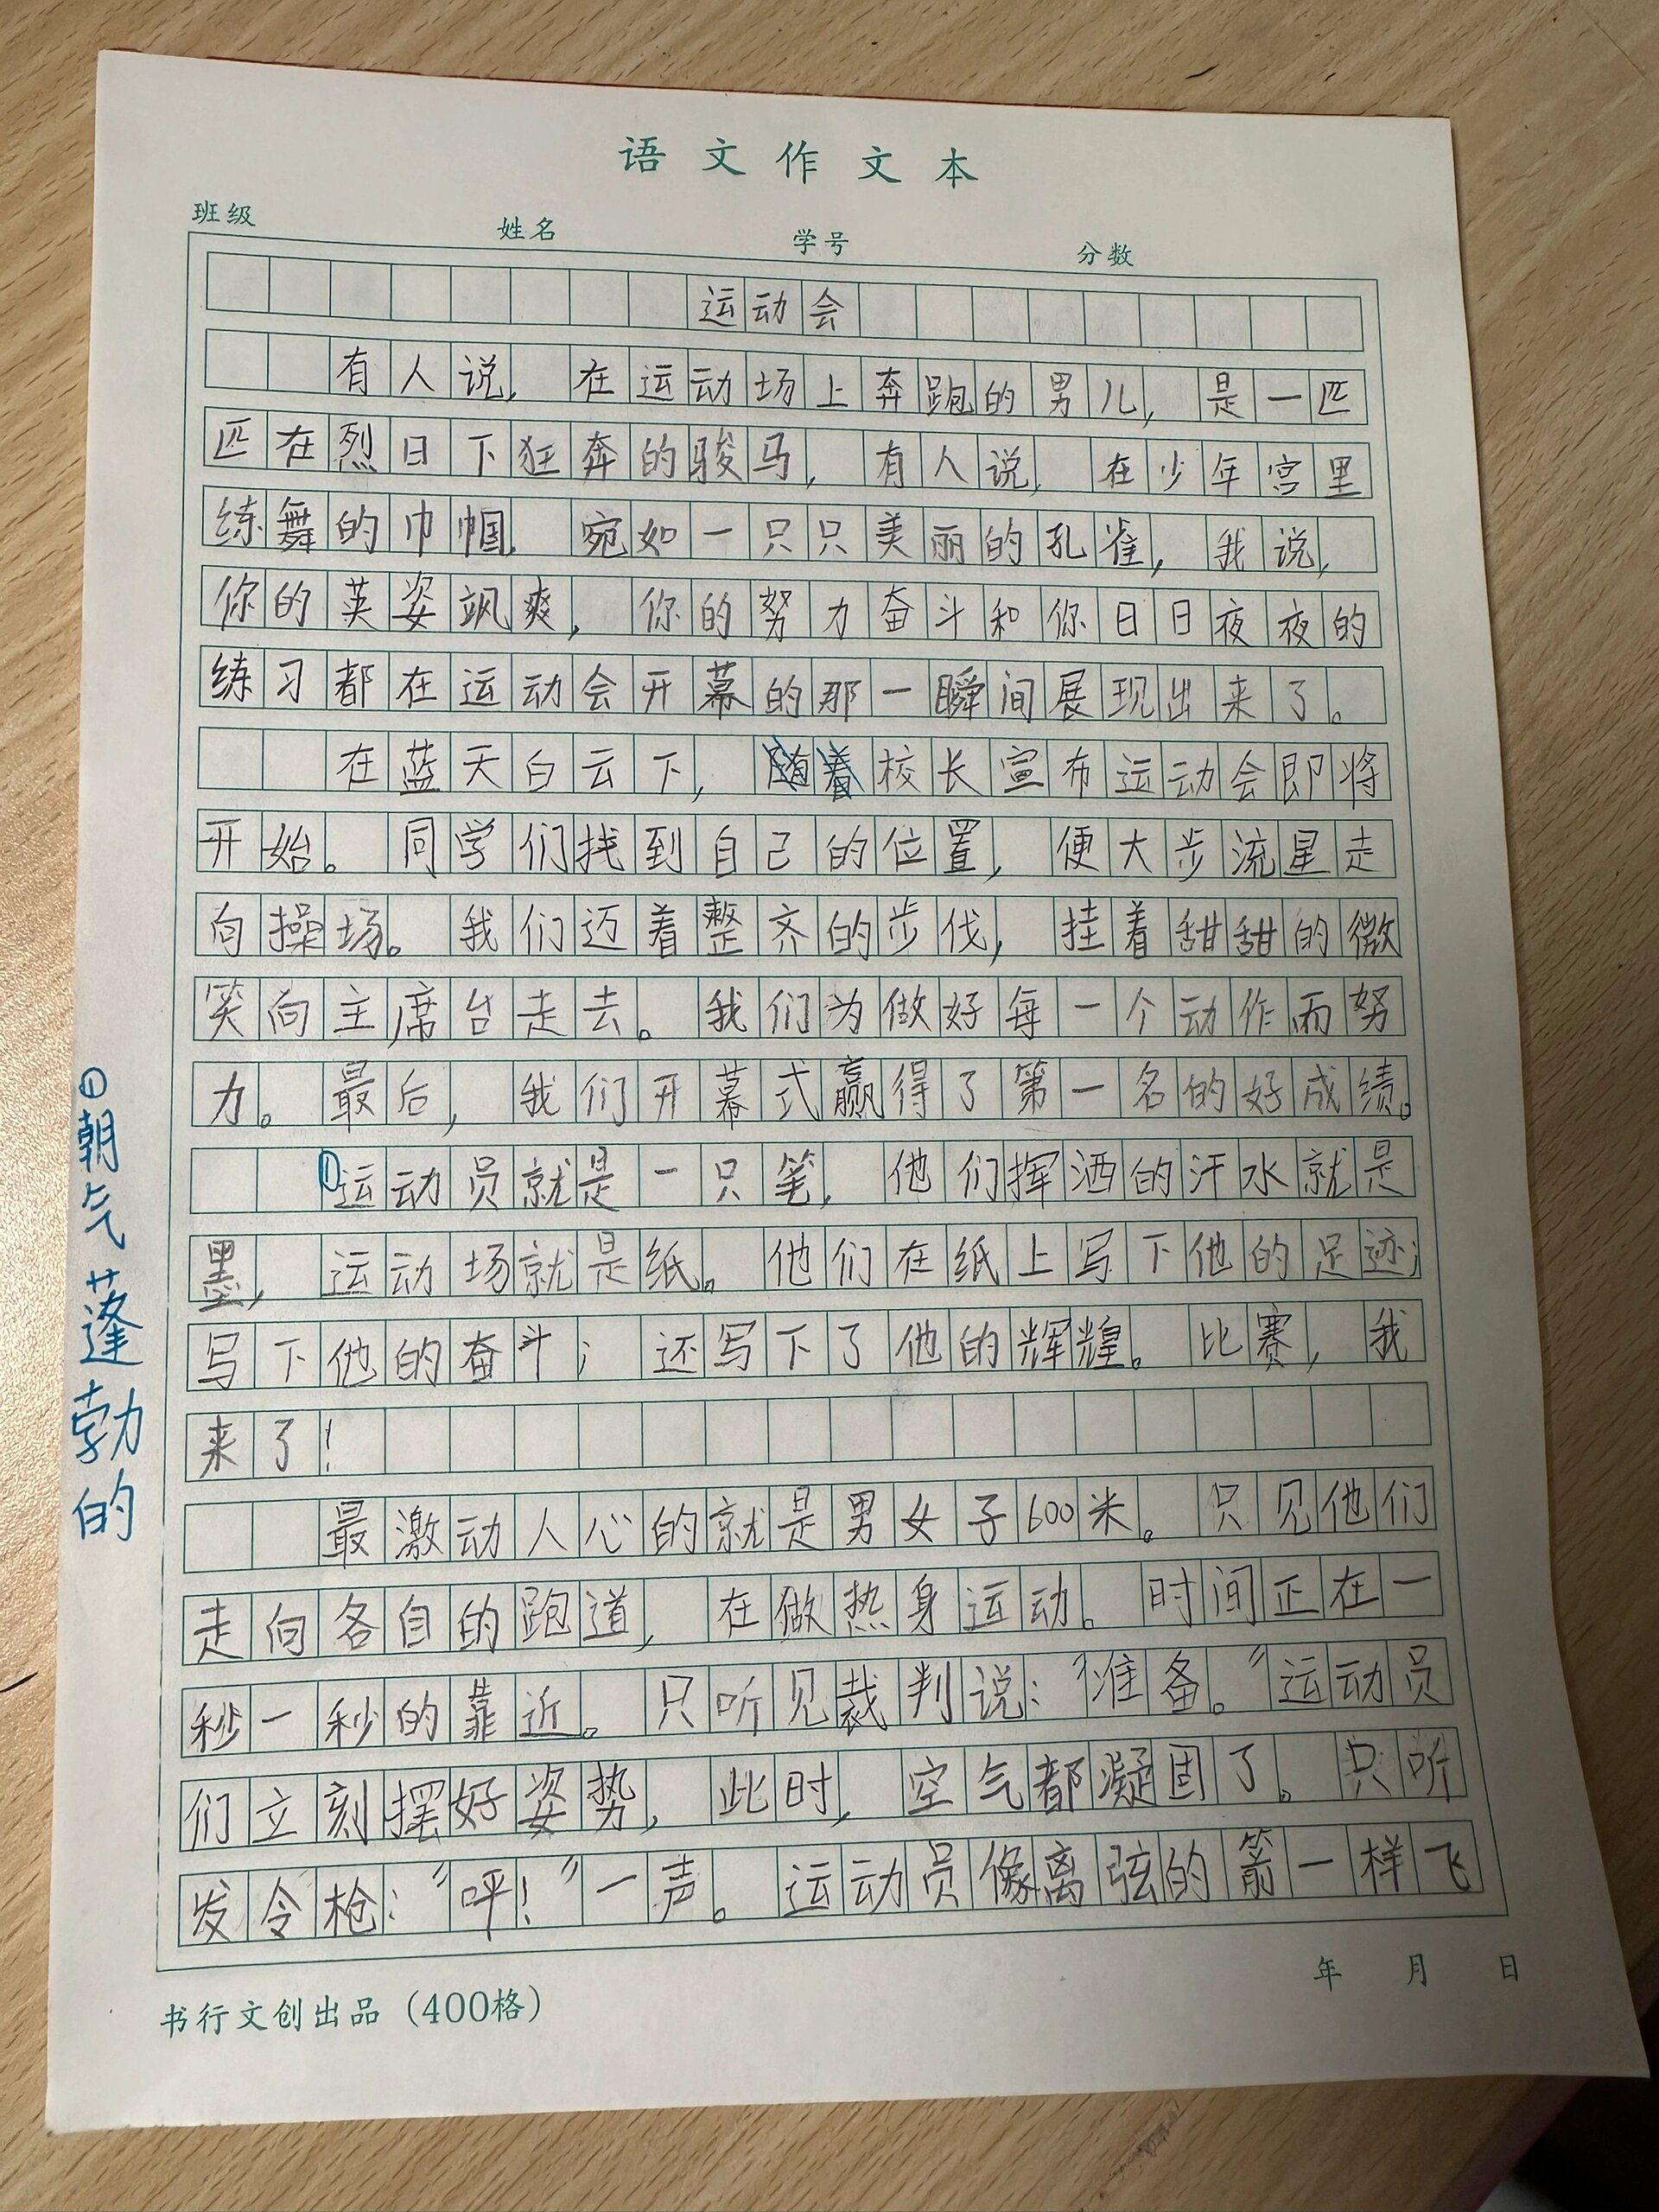 语文作文本
班级 姓名 学号 分数
运动会
有人说,在运动场上奔跑的男儿,是一匹
匹在烈日下狂奔的骏马,有人说,在少年宫里
练舞的巾帼,宛如一只只美丽的孔雀,我说,
你的英姿飒爽,你的努力奋斗和你日日夜夜的
练习都在运动会开幕的那一瞬间展现出来了。
在蓝天白云下,随着校长宣布运动会即将
开始。同学们找到自己的位置,便大步流星走
向操场。我们迈着整齐的步伐,挂着甜甜的微
笑向主席台走去。我们为做好每一个动作而努
力。最后,我们开幕式赢得了第一名的好成绩。
①运动员就是一只笔,他们挥洒的汗水就是
墨,运动场就是纸。他们在纸上写下他的足迹;
写下他的奋斗;还写下了他的辉煌。比赛,我
来了!
最激动人心的就是男女子600米。只见他们
走向各自的跑道,在做热身运动。时间正在一
秒一秒的靠近。只听见裁判说:“准备。”运动员
们立刻摆好姿势,此时,空气都凝固了。只听
发令枪:“呯!”一声。运动员像离弦的箭一样飞
①朝气蓬勃的
年 月 日
书行文创出品(400格)